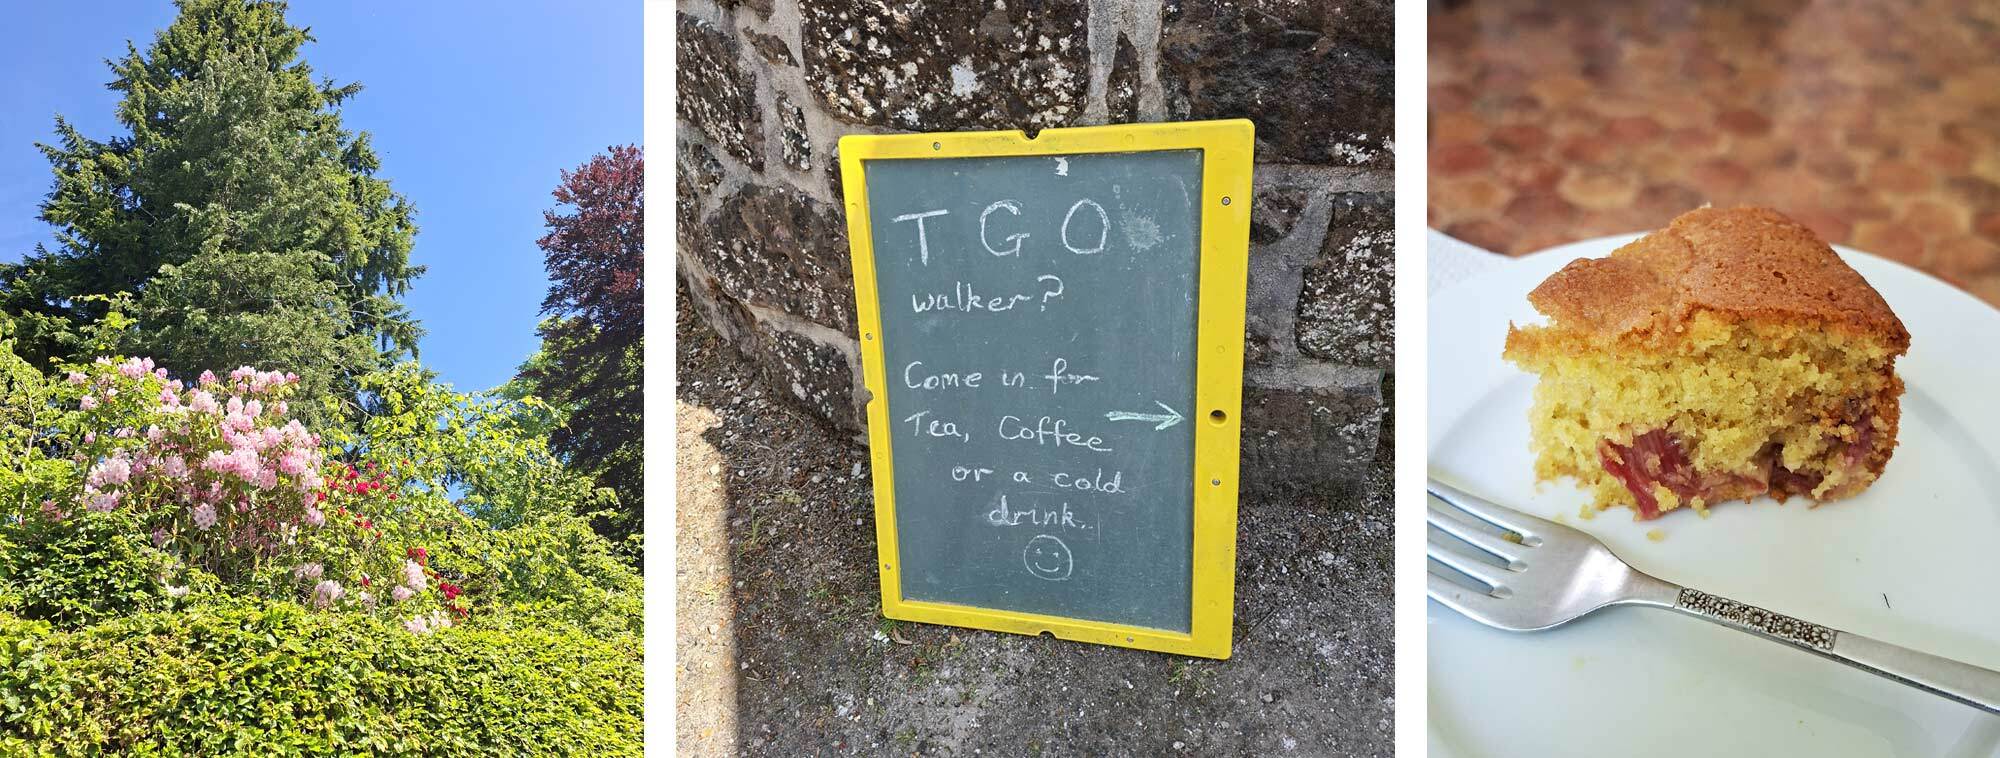 T G O
walker?
Come in for
Tea, Coffee
or a cold
drink.